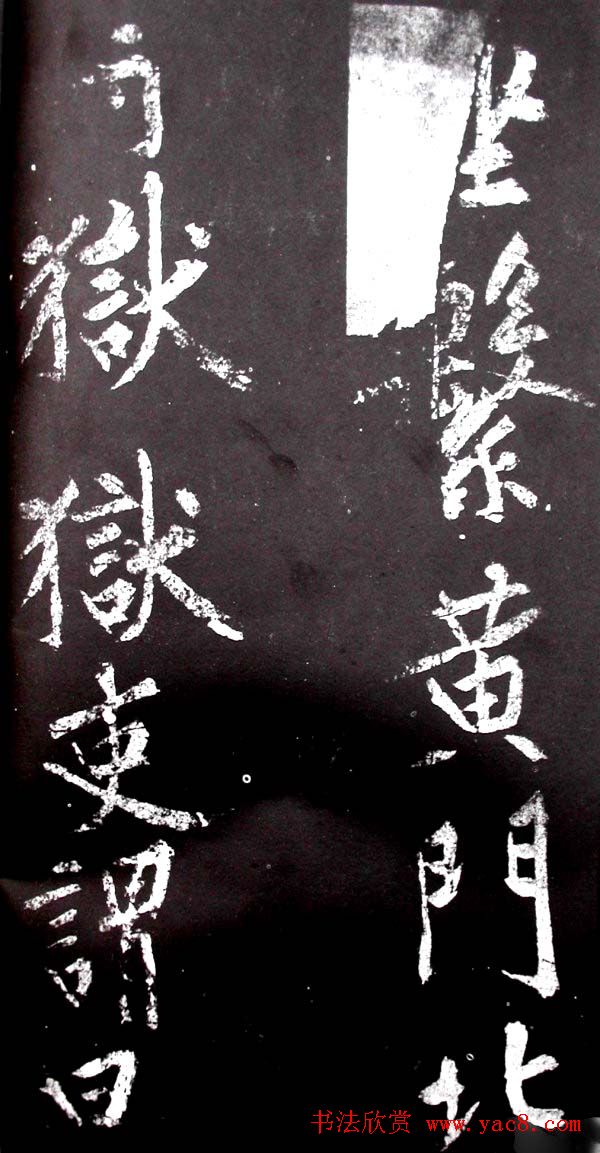 坐繫黃門北
寺獄獄吏謂曰
书法欣赏 www.yac8.com